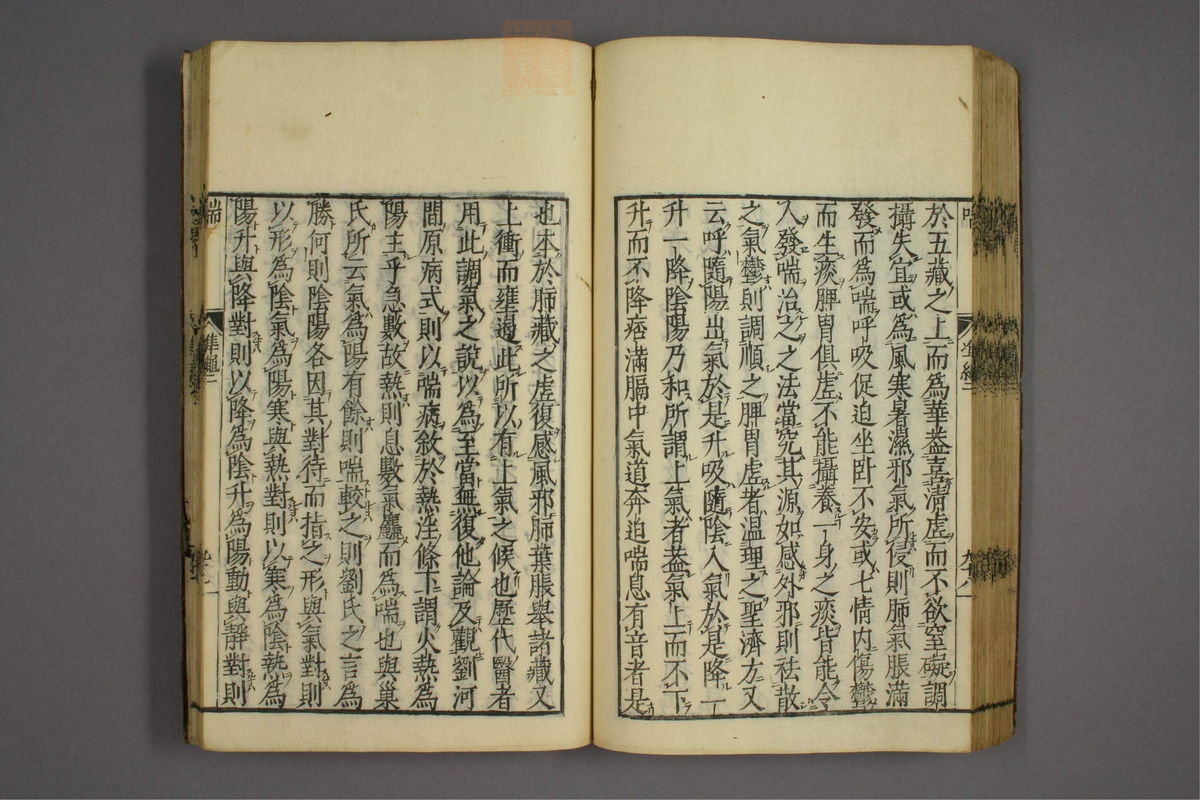 於五藏之上而為華葢喜清虛而不欲窒礙調
攝失宜或為風寒暑濕邪氣所侵則肺氣脹滿
發而為喘呼吸促迫坐卧不安或七情内傷鬱
而生痰脾胃俱虛不能攝養一身之痰皆能令
人發喘治之之法當究其源如感外邪則祛散
之氣鬱則調順之脾胃虛者温理之聖濟方又
云呼隨陽出氣於是升吸隨陰入氣於是降一
升一降陰陽乃和所謂上氣者葢氣上而不下
升而不降痞滿膈中氣道奔迫喘息有音者是
也本於肺藏之虛復感風邪肺葉脹舉諸藏又
上衝而壅遏此所以有上氣之候也歷代醫者
用此調氣之說以為至當無復他論及觀劉河
間原病式則以喘病敘於熱淫條下謂火熱為
陽主乎急數故熱則息數氣麤而為喘也與巢
氏所云氣為陽有餘則喘較之則劉氏之言為
勝何則陰陽各因其對待而指之形與氣對則
以形為陰氣為陽寒與熱對則以寒為陰熱為
陽升與降對則以降為陰升為陽動與靜對則
喘
準繩二